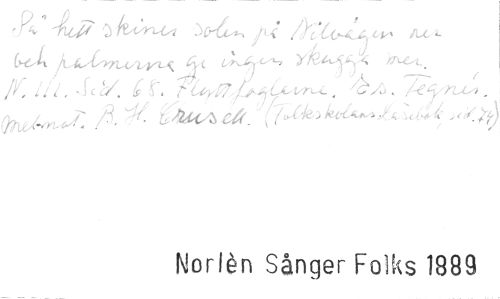 Så hett skiner solen på Nilvågen ner
och palmerna ge ingen skugga mer.
N. III. Sid. 68. Flyttfoglarne. Es. Tegnér.
B. H. Crusell. (Folkskolans Läsebok, sid. 74)
Norlèn Sånger Folks 1889